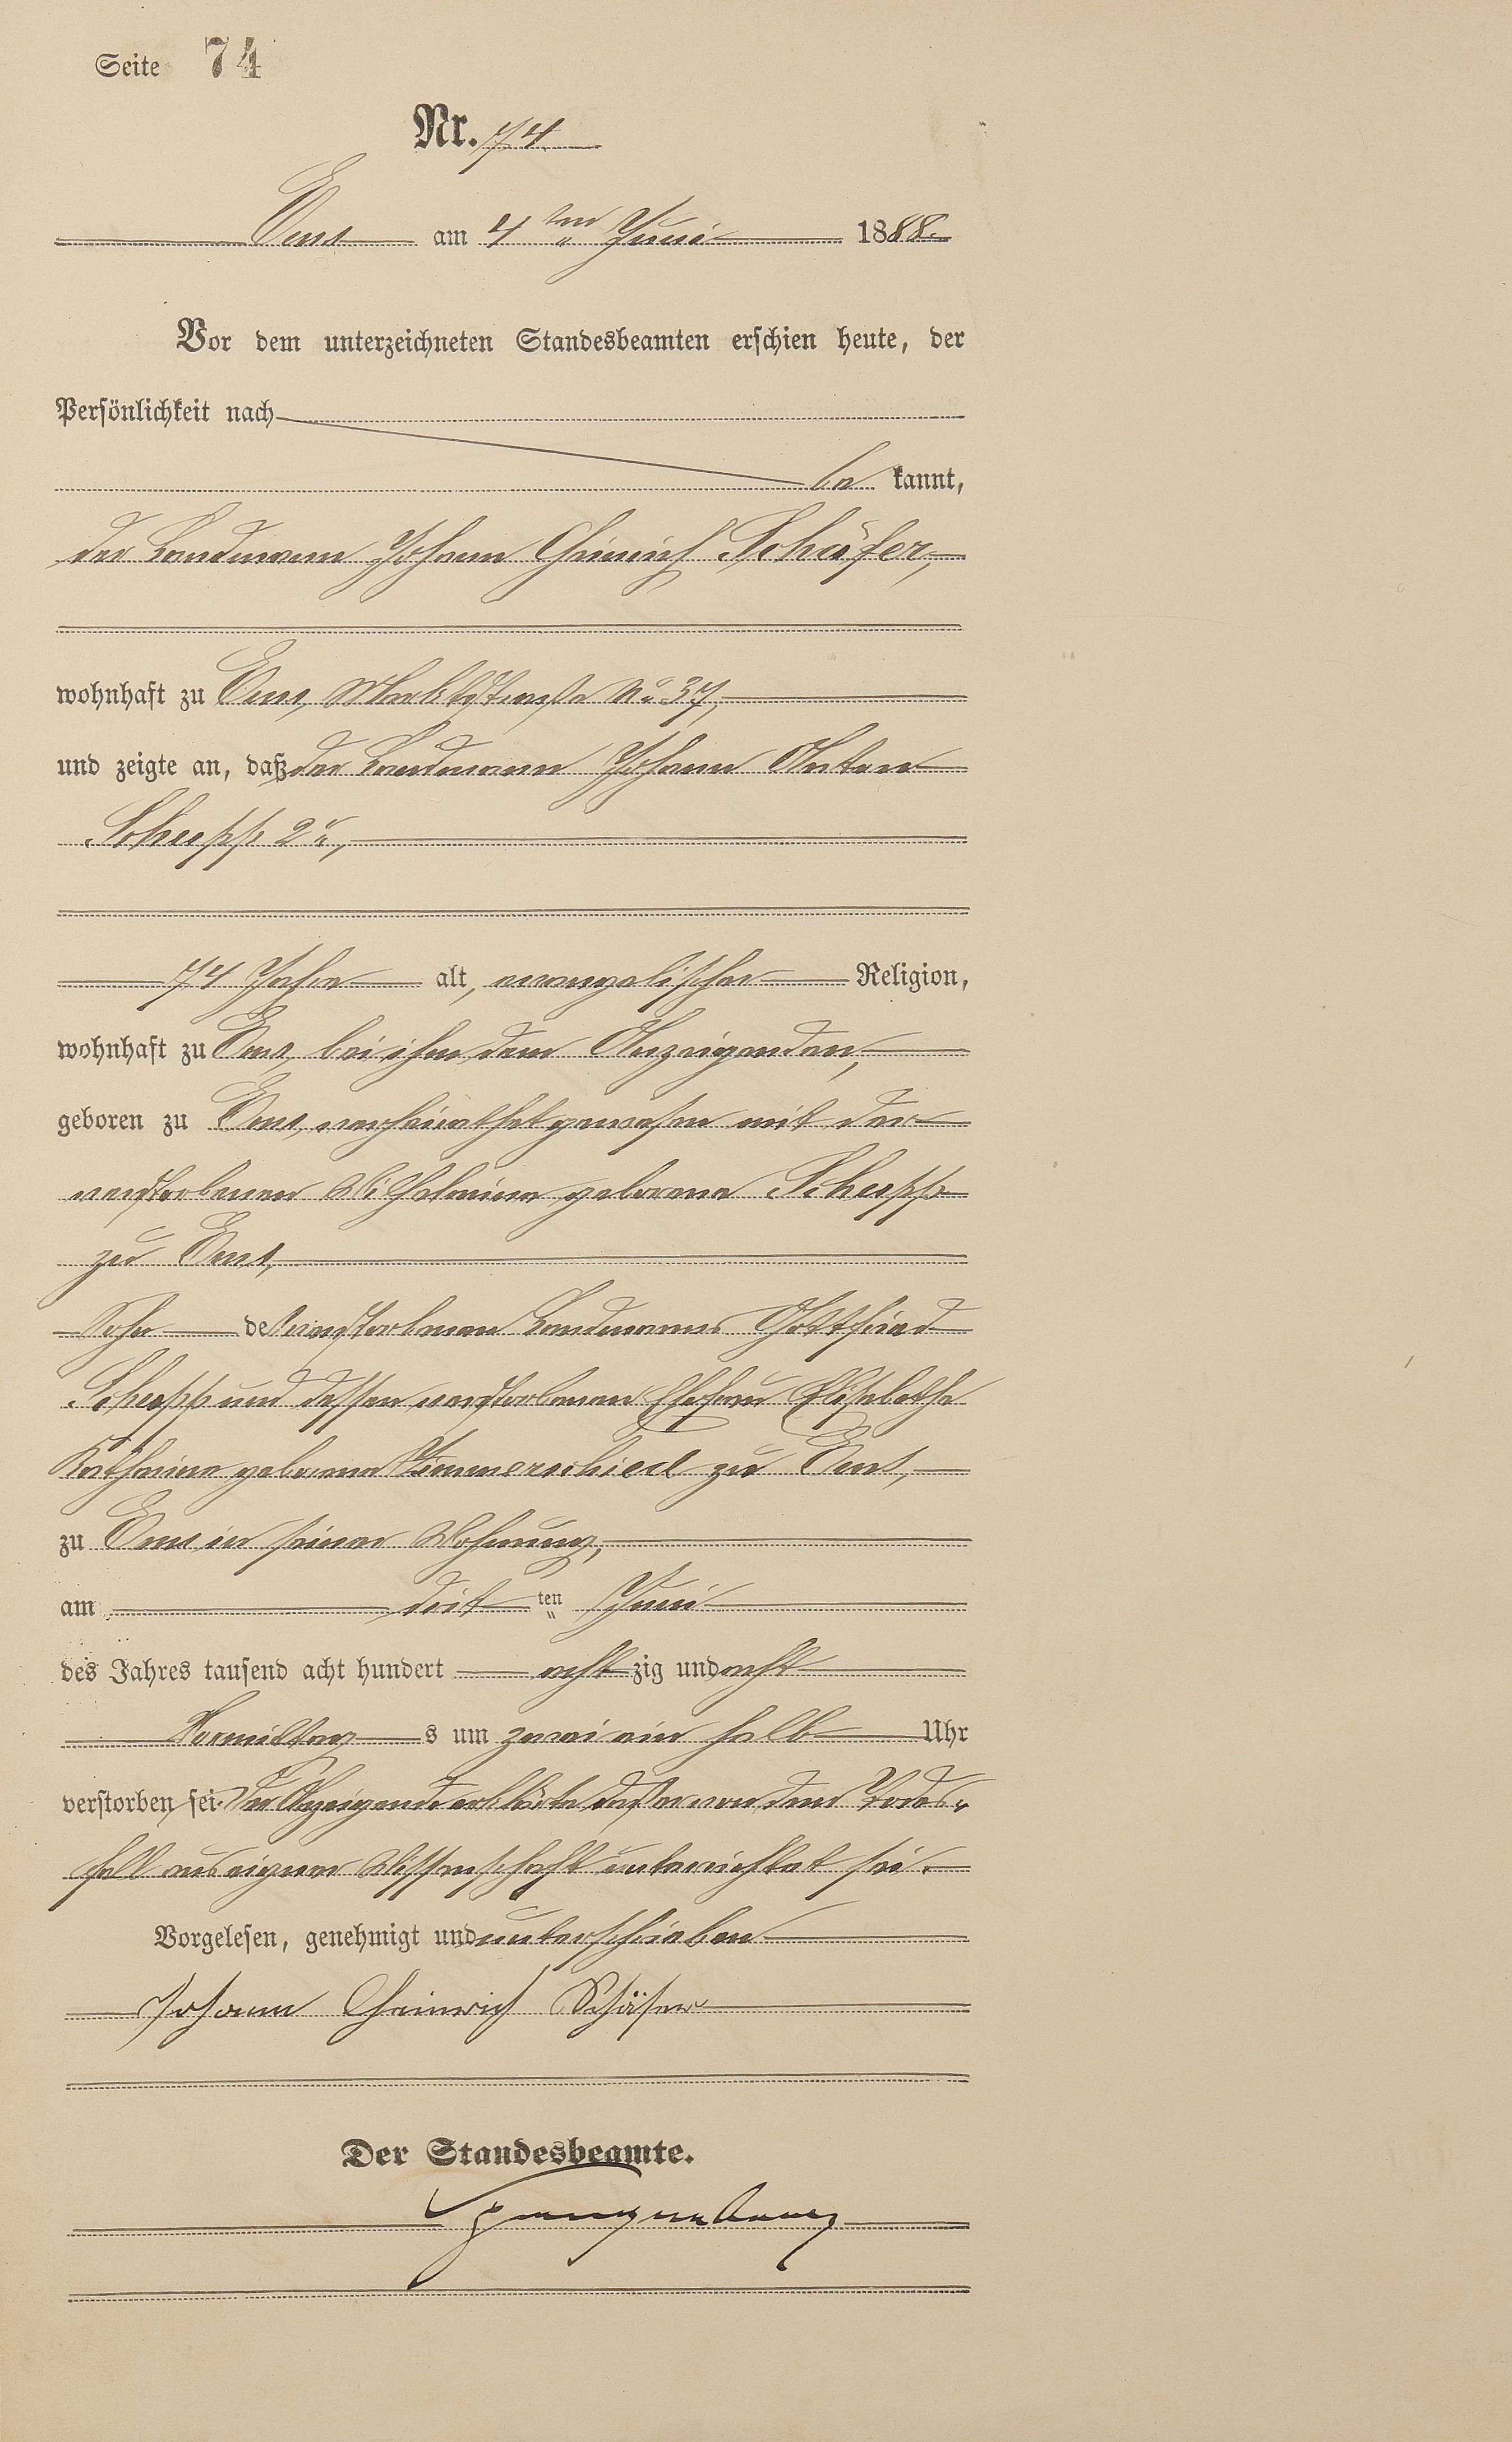 Seite 74
Nr. 74
Ems am 4ten Juni 1888.
Vor dem unterzeichneten Standesbeamten erschien heute, der
Persönlichkeit nach
be kannt,
der Landmann Johann Heinrich Schäfer,
wohnhaft zu Ems, No 37,
und zeigte an, daß der Landmann Johann Anton
Schupp 2r,
74 Jahre alt, evangelischer Religion,
wohnhaft zu Ems, bei ihm dem Anzeigenden,
geboren zu Ems, verheirathet gewesen mit der
verstorbenen Wilhelmine geborene Schupp
zu Ems,
Sohn des verstorbenen Landmanns Gottfried
Schupp und dessen verstorbenen Ehefrau Elisabethe
Katharine geborene Zimmerschied zu Ems,
zu Ems in seiner Wohnung,
am drit ten Juni
des Jahres tausend acht hundert acht zig und acht
Vormittag s um zwei ein halb Uhr
verstorben sei. Der Anzeigende erklärte daß er von dem Todes-
fall aus eigener Wissenschaft unterrichtet sei.
Vorgelesen, genehmigt und unterschrieben
Johann Heinrich Schäfer
Der Standesbeamte.